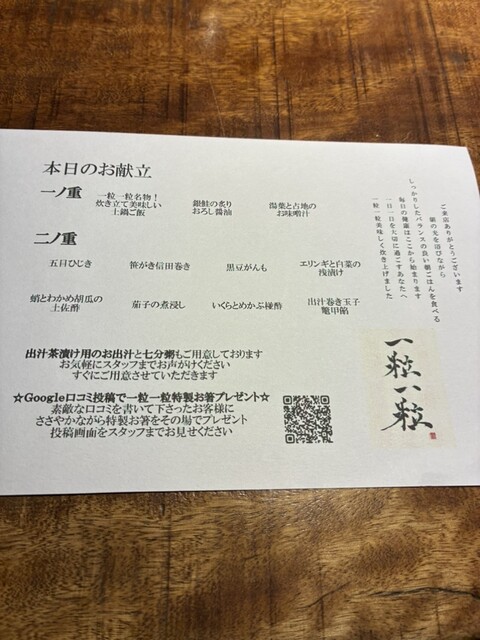 本日のお献立
一ノ重
一粒一粒名物！
炊き立て美味しい
土鍋ご飯
銀鮭の炙り
おろし醤油
湯葉と占地の
お味噌汁
二ノ重
五目ひじき
笹がき信田巻き
黒豆がんも
エリンギと白菜の
浅漬け
蛸とわかめ胡瓜の
土佐酢
茄子の煮浸し
いくらとめかぶ棰酢
出汁巻き玉子
鼈甲餡
出汁茶漬け用のお出汁と七分粥もご用意しております
お気軽にスタッフまでお声がけください
すぐにご用意させていただきます
☆Google口コミ投稿で一粒一粒特製お箸プレゼント☆
素敵な口コミを書いて下さったお客様に
ささやかながら特製お箸をその場でプレゼント
投稿画面をスタッフまでお見せください
ご来店ありがとうございます
朝の光を浴びながら
しっかりしたバランスの良い朝ごはんを食べる
毎日の健康はここから始まります
一日一日を大切に過ごすあなたへ
一粒一粒美味しく炊き上げました
一粒一粒